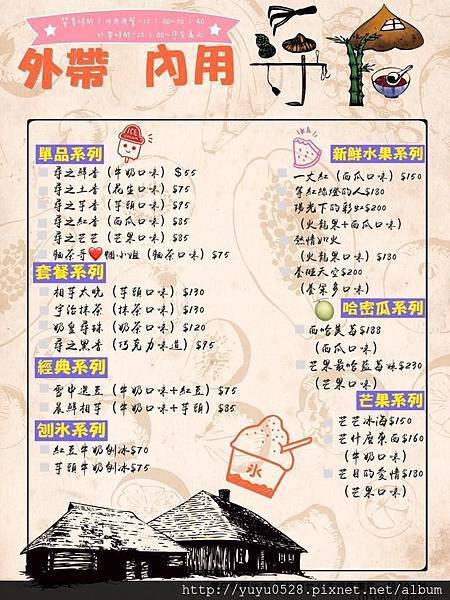 外帶 內用
單品系列
尋之鮮香（牛奶口味）$55
尋之土香（花生口味）$75
尋之芋香（芋頭口味）$75
尋之紅香（西瓜口味）$85
尋之芒芒（芒果口味）$85
麵茶哥❤麵小姐（麵茶口味）$75
套餐系列
相芋大晚（芋頭口味）$130
宇治抹茶（抹茶口味）$130
奶皇尋球（奶茶口味）$120
尋之黑香（巧克力味道）$95
經典系列
雪中送豆（牛奶口味+紅豆）$75
晨鮮相芋（牛奶口味+芋頭）$85
刨冰系列
紅豆牛奶刨冰$70
芋頭牛奶刨冰$75
ICE CREAM
新鮮水果系列
一丈紅（西瓜口味）$150
穿紅綠燈的人$180
陽光下的彩虹$200
（火龍果+西瓜口味）
熱情如火
（火龍果口味）$180
養晴天空$200
（養樂多口味）
哈密瓜系列
西哈美莓$188
（西瓜口味）
芒果最哈藍莓妹$230
（芒果口味）
芒果系列
芒芒冰海$150
芒什麼東西$160
（牛奶口味）
芒目的愛情$180
（芒果口味）
冰
http://yuyu0528.pixnet.net/album